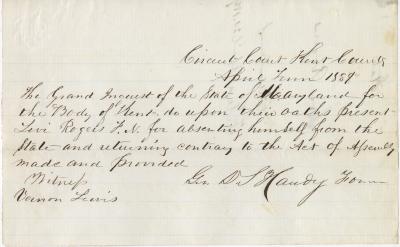 Circuit Court Kent County
April Term 1859
The Grand Inquest of the State of Maryland for
the Body of Kent, do upon their oaths present
Levi Rogers F. N. for absenting himself from the
State and returning contrary to the Act of Assembly
made and provided
Witness Geo D. S Handy Form
Vernon Lewis